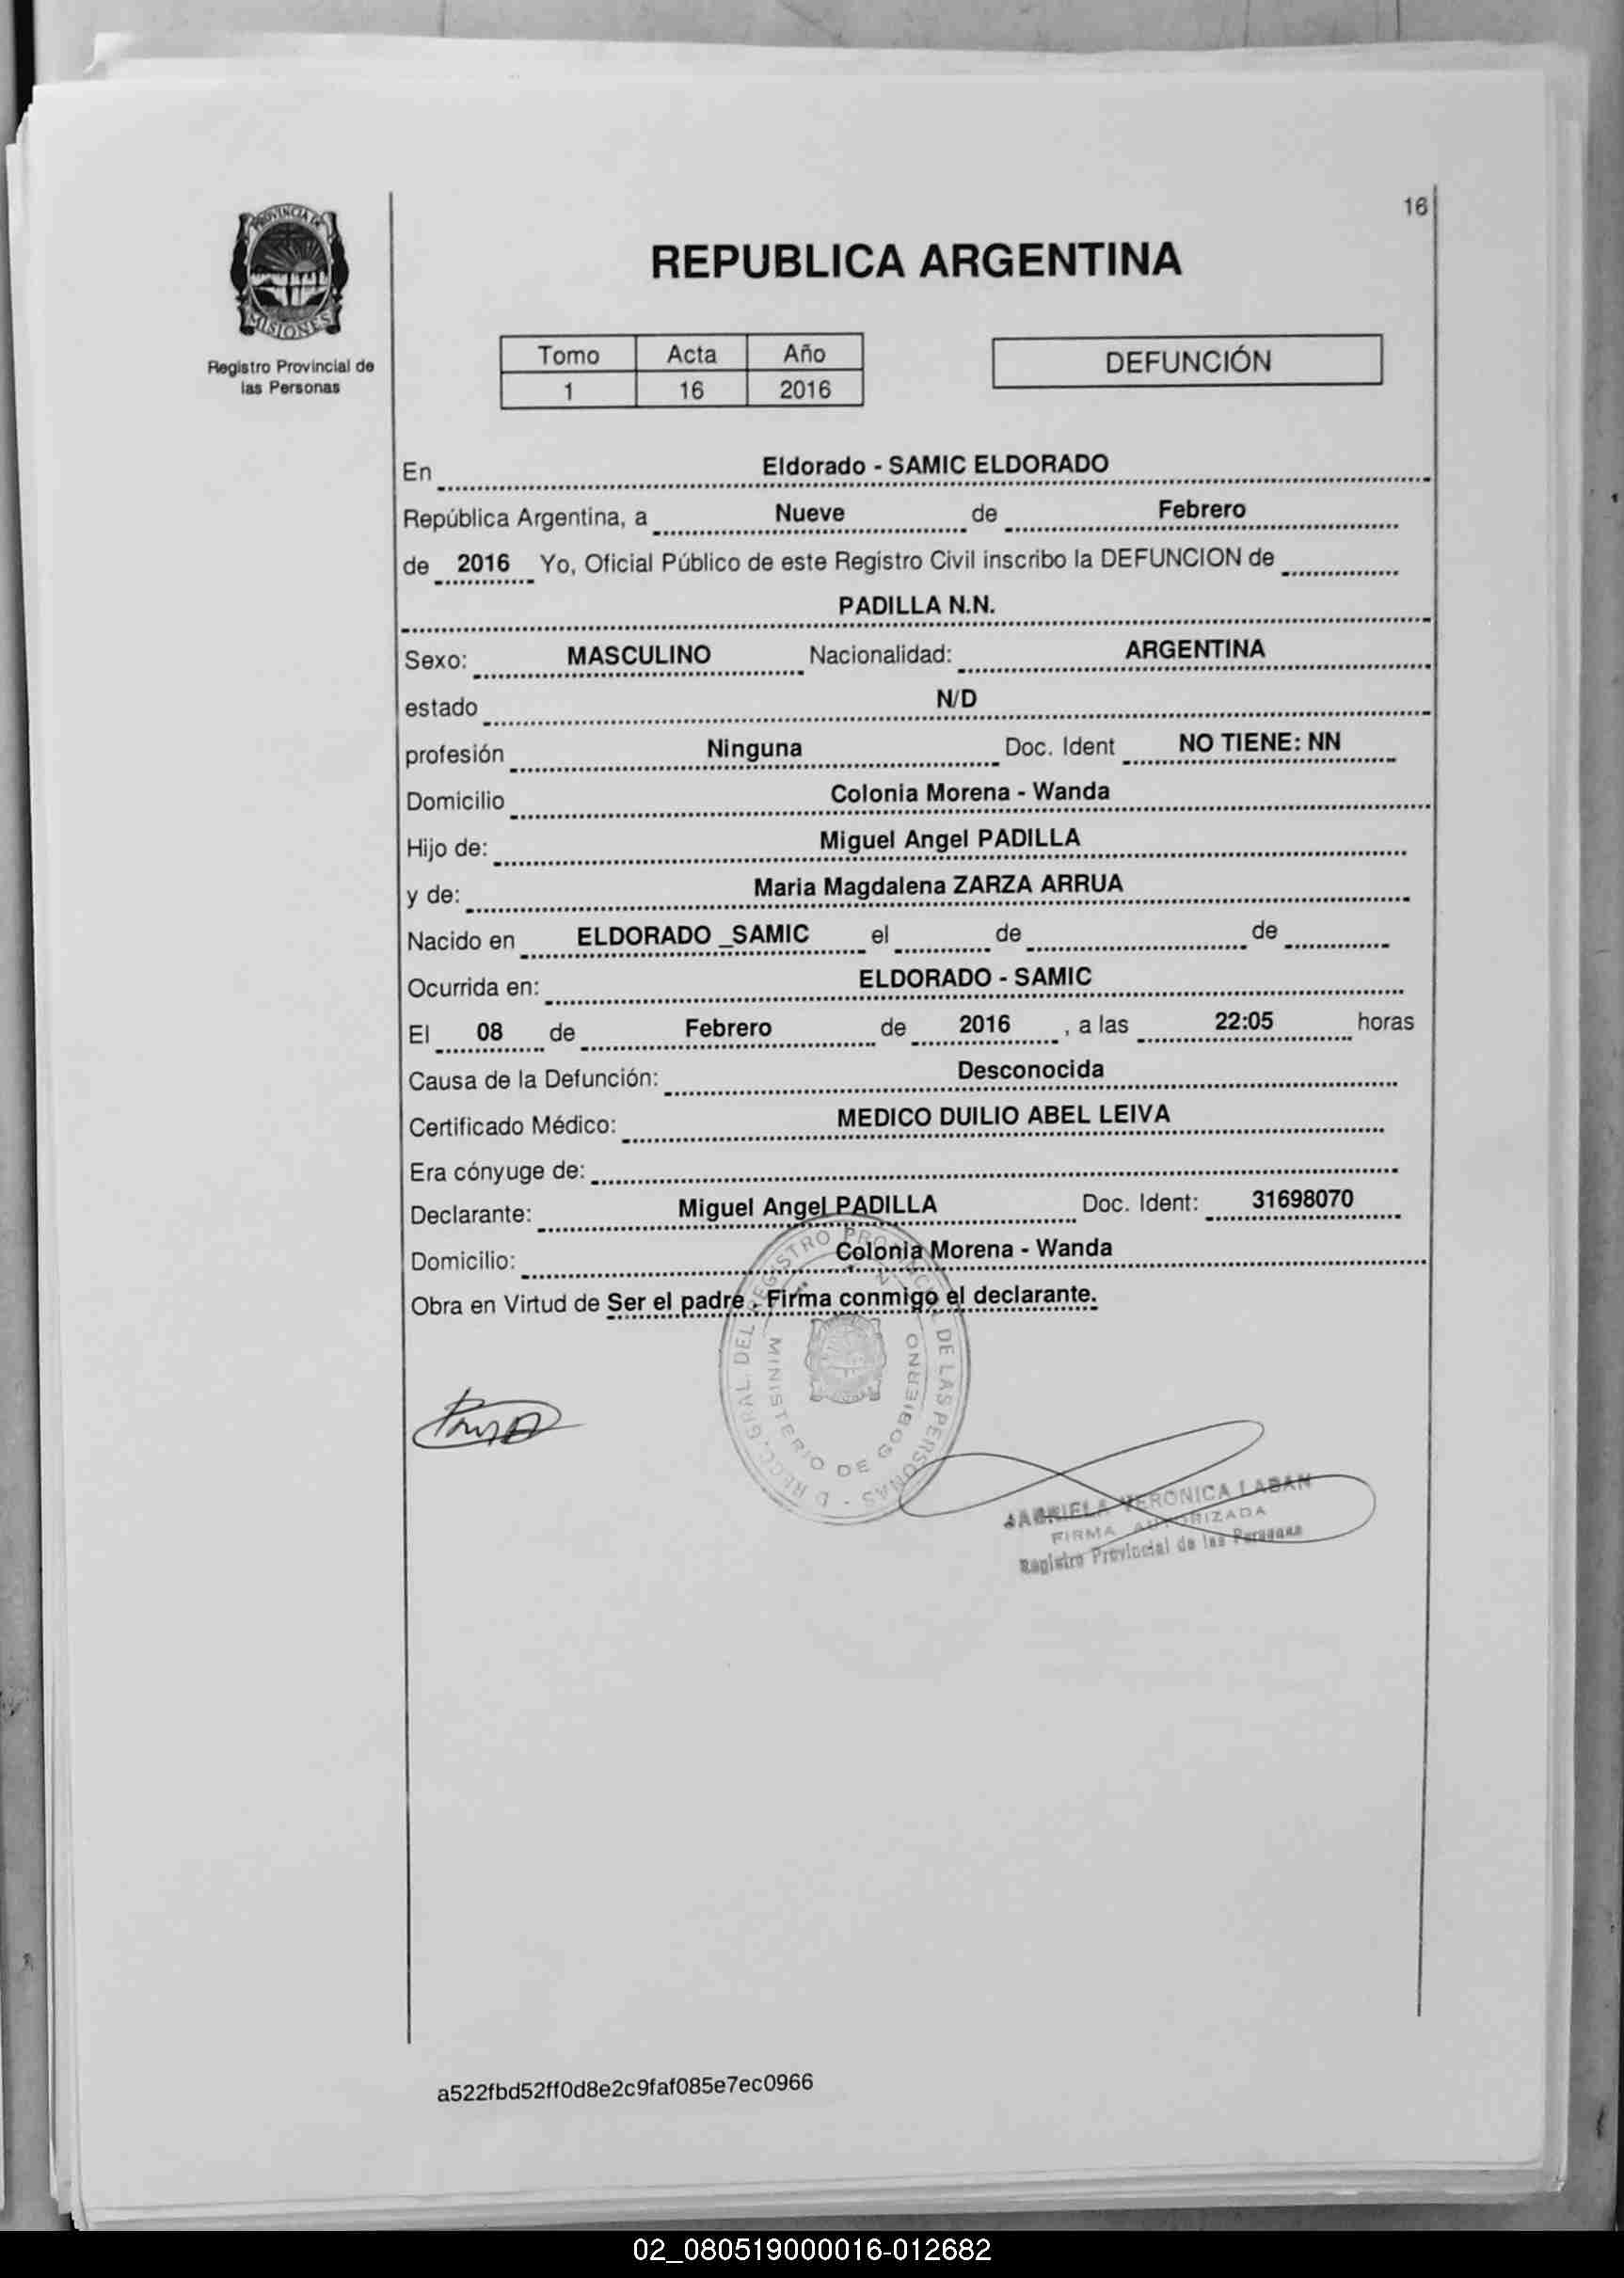 16
PROVINCIA DE
MISIONES
Registro Provincial de
las Personas
REPUBLICA ARGENTINA
Tomo Acta Año
1 16 2016
DEFUNCIÓN
En Eldorado - SAMIC ELDORADO
República Argentina, a Nueve de Febrero
de 2016 Yo, Oficial Público de este Registro Civil inscribo la DEFUNCION de
PADILLA N.N.
Sexo: MASCULINO Nacionalidad: ARGENTINA
estado N/D
profesión Ninguna Doc. Ident NO TIENE: NN
Domicilio Colonia Morena - Wanda
Hijo de: Miguel Angel PADILLA
y de: Maria Magdalena ZARZA ARRUA
Nacido en ELDORADO _SAMIC el de de
Ocurrida en: ELDORADO - SAMIC
El 08 de Febrero de 2016 , a las 22:05 horas
Causa de la Defunción: Desconocida
Certificado Médico: MEDICO DUILIO ABEL LEIVA
Era cónyuge de:
Declarante: Miguel Angel PADILLA Doc. Ident: 31698070
Domicilio: Colonia Morena - Wanda
Obra en Virtud de Ser el padre . Firma conmigo el declarante.
GRAL. DEL REGISTRO PROVINCIAL DE LAS PERSONAS -
MINISTERIO DE GOBIERNO
VERONICA LABAN
FIRMA AUTORIZADA
Registro Provincial de las Personas
a522fbd52ff0d8e2c9faf085e7ec0966
02_080519000016-012682